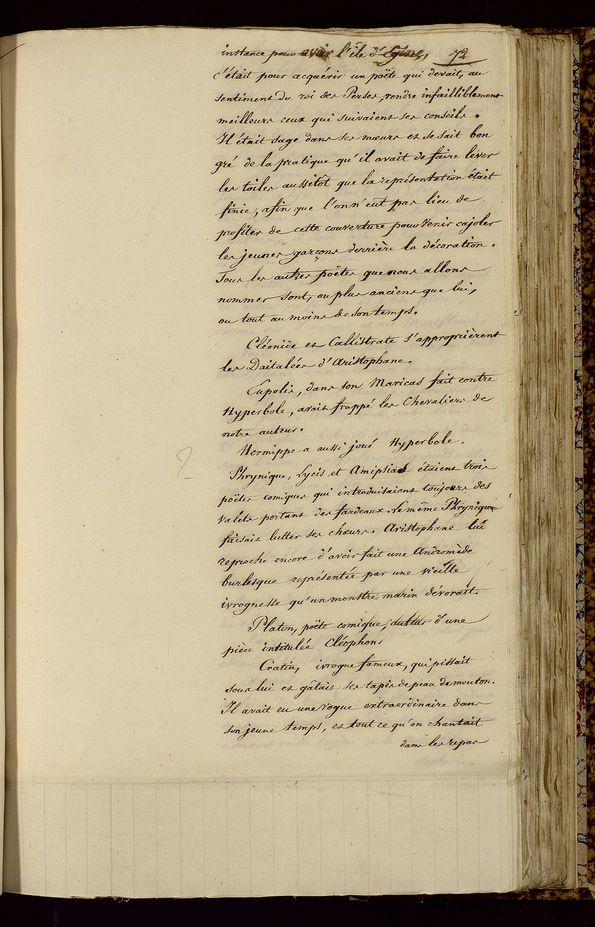 instance pour avoir l'île d'Egine, 72
c'était pour acquérir un poëte qui devait, au
sentiment du roi des Perses, rendre infailliblement
meilleurs ceux qui suivaient ses conseils.
Il était sage dans ses mœurs et se sait bon
gré de la pratique qu'il avait de faire lever
les toiles aussitot que la représentation était
finie, afin que l'on n'eut pas lieu de
profiter de cette couverture pour venir cajoler
les jeunes garçons derrière la décoration.
Tous les autres poëtes que nous allons
nommer sont, ou plus anciens que lui,
ou tout au moins de son temps.
Cléonide et Callistrate s'approprièrent
les Daitalées d'Aristophane.
Eupolis, dans son Maricas fait contre
Hyperbole, avait frappé les Chevaliers de
notre auteur.
Hermippe a aussi joué Hyperbole.
Phrynique, Lycis et Amipsias étaient trois
poëtes comiques qui introduisaient toujours des
valets portant des fardeaux. Le même Phrynique
faisait lutter ses chœurs. Aristophane lui
reproche encore d'avoir fait une Andromède
burlesque représentée par une vieille
ivrognesse qu'un monstre marin dévorait.
Platon, poëte comique, auteur d'une
pièce intitulée Cléophon.
Cratin, ivrogne fameux, qui pissait
sous lui et gâtait ses tapis de peau de mouton.
Il avait eu une vogue extraordinaire dans
son jeune temps, et tout ce qu'on chantait
dans les repas